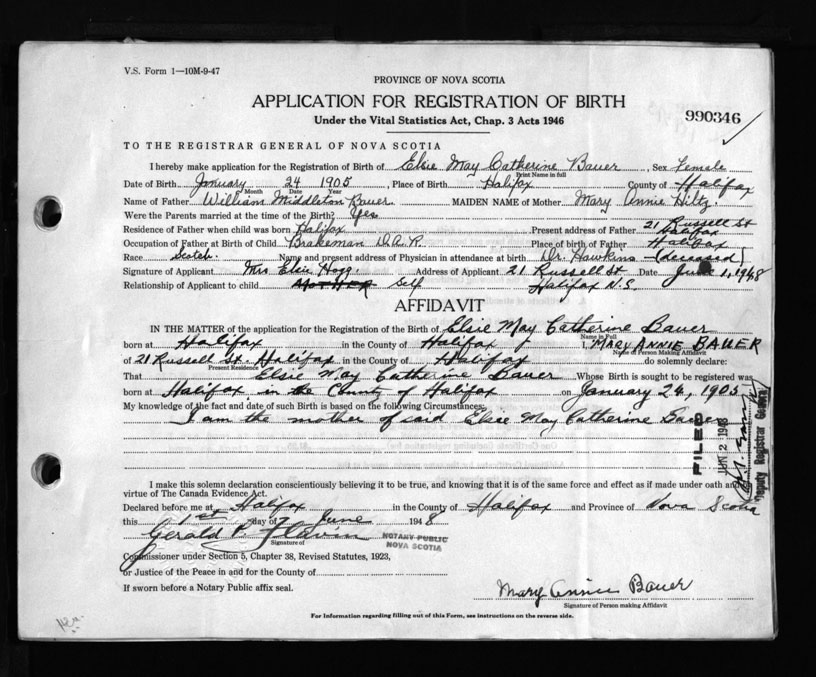 V.S. Form 1—10M-9-47
PROVINCE OF NOVA SCOTIA
APPLICATION FOR REGISTRATION OF BIRTH
Under the Vital Statistics Act, Chap. 3 Acts 1946
990346
TO THE REGISTRAR GENERAL OF NOVA SCOTIA
I hereby make application for the Registration of Birth of Elsie May Catherine Bauer, Sex Female
Print Name in full
Date of Birth January 24 1905, Place of Birth Halifax County of Halifax
Month Date Year
Name of Father William Middleton Bauer MAIDEN NAME of Mother Mary Annie Hiltz
Were the Parents married at the time of the Birth? Yes
21 Russell St
Residence of Father when child was born Halifax Present address of Father Halifax
Occupation of Father at Birth of Child Brakeman D.A.R. Place of birth of Father Halifax
Race Scotch Name and present address of Physician in attendance at birth Dr. Hawkins (deceased)
Signature of Applicant Mrs Elsie Hogg. Address of Applicant 21 Russell St Date June 1, 1948
Relationship of Applicant to child MOTHER Self Halifax N.S.
AFFIDAVIT
IN THE MATTER of the application for the Registration of the Birth of Elsie May Catherine Bauer
Name in Full
born at Halifax in the County of Halifax I, MARY ANNIE BAUER
Name of Person Making Affidavit
of 21 Russell St. Halifax in the County of Halifax do solemnly declare:
Present Residence
That Elsie May Catherine Bauer Whose Birth is sought to be registered was
born at Halifax in the County of Halifax on January 24, 1905
My knowledge of the fact and date of such Birth is based on the following Circumstances:
I am the mother of said Elsie May Catherine Bauer
FILED
JUN 2 1948
Deputy Registrar General
I make this solemn declaration conscientiously believing it to be true, and knowing that it is of the same force and effect as if made under oath and
virtue of The Canada Evidence Act.
Declared before me at Halifax in the County of Halifax and Province of Nova Scotia
this 1st day of June 1948
Gerald P. Flavin
Signature of
NOTARY PUBLIC
NOVA SCOTIA
Commissioner under Section 5, Chapter 38, Revised Statutes, 1923,
or Justice of the Peace in and for the County of
If sworn before a Notary Public affix seal.
Mary Annie Bauer
Signature of Person making Affidavit
For Information regarding filling out of this Form, see instructions on the reverse side.